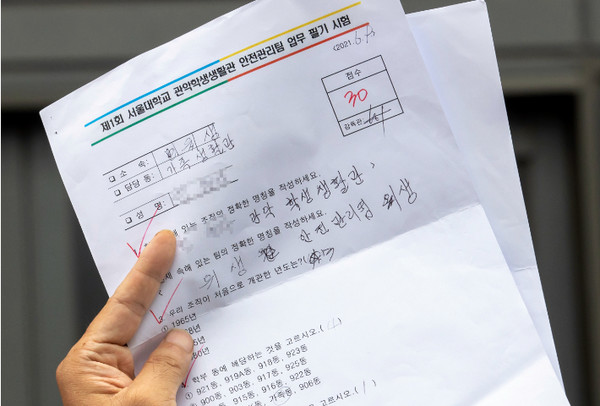 제1회 서울대학교 관악학생생활관 안전관리팀 업무 필기 시험
(2021.6.
점수
30
감독관
□ 소 속:
□ 담당 동: 가족생활관
□ 성 명:
있는 조직의 정확한 명칭을 작성하세요.
관악 학생 생활관
속해 있는 팀의 정확한 명칭을 작성하세요.
위생 안전관리팀 위생
우리 조직이 처음으로 개관한 년도는?(
① 1965년
학부 동에 해당하는 것을 고르시오.(
① 921동, 919A동, 918동, 923동
900동, 903동, 917동, 925동
915동, 916동, 922동
가족동, 906동
고르시오.( / )